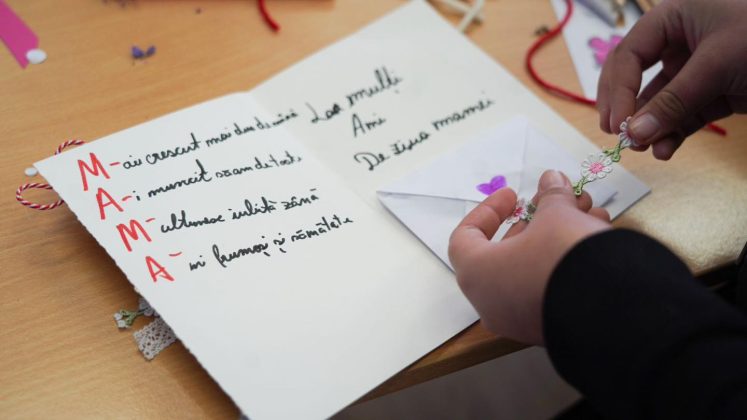 M-ai crescut mai dus de mână
A-i muncit s am de toate
M-ulțumesc iubită zână
A-ni frumoși și sănătate
La mulți
Ani
De ziua mamei